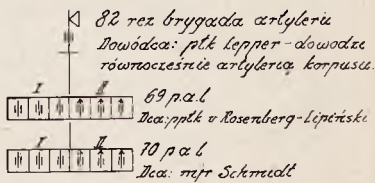 82 rez brygada artylerii
Dowódca: płk Lepper - dowodzi
równocześnie artylerią korpusu.
I II
69 p.a.l
Dca: ppłk v Rosenberg-Lipiński
I II
70 p a l
Dca: mjr Schmidt